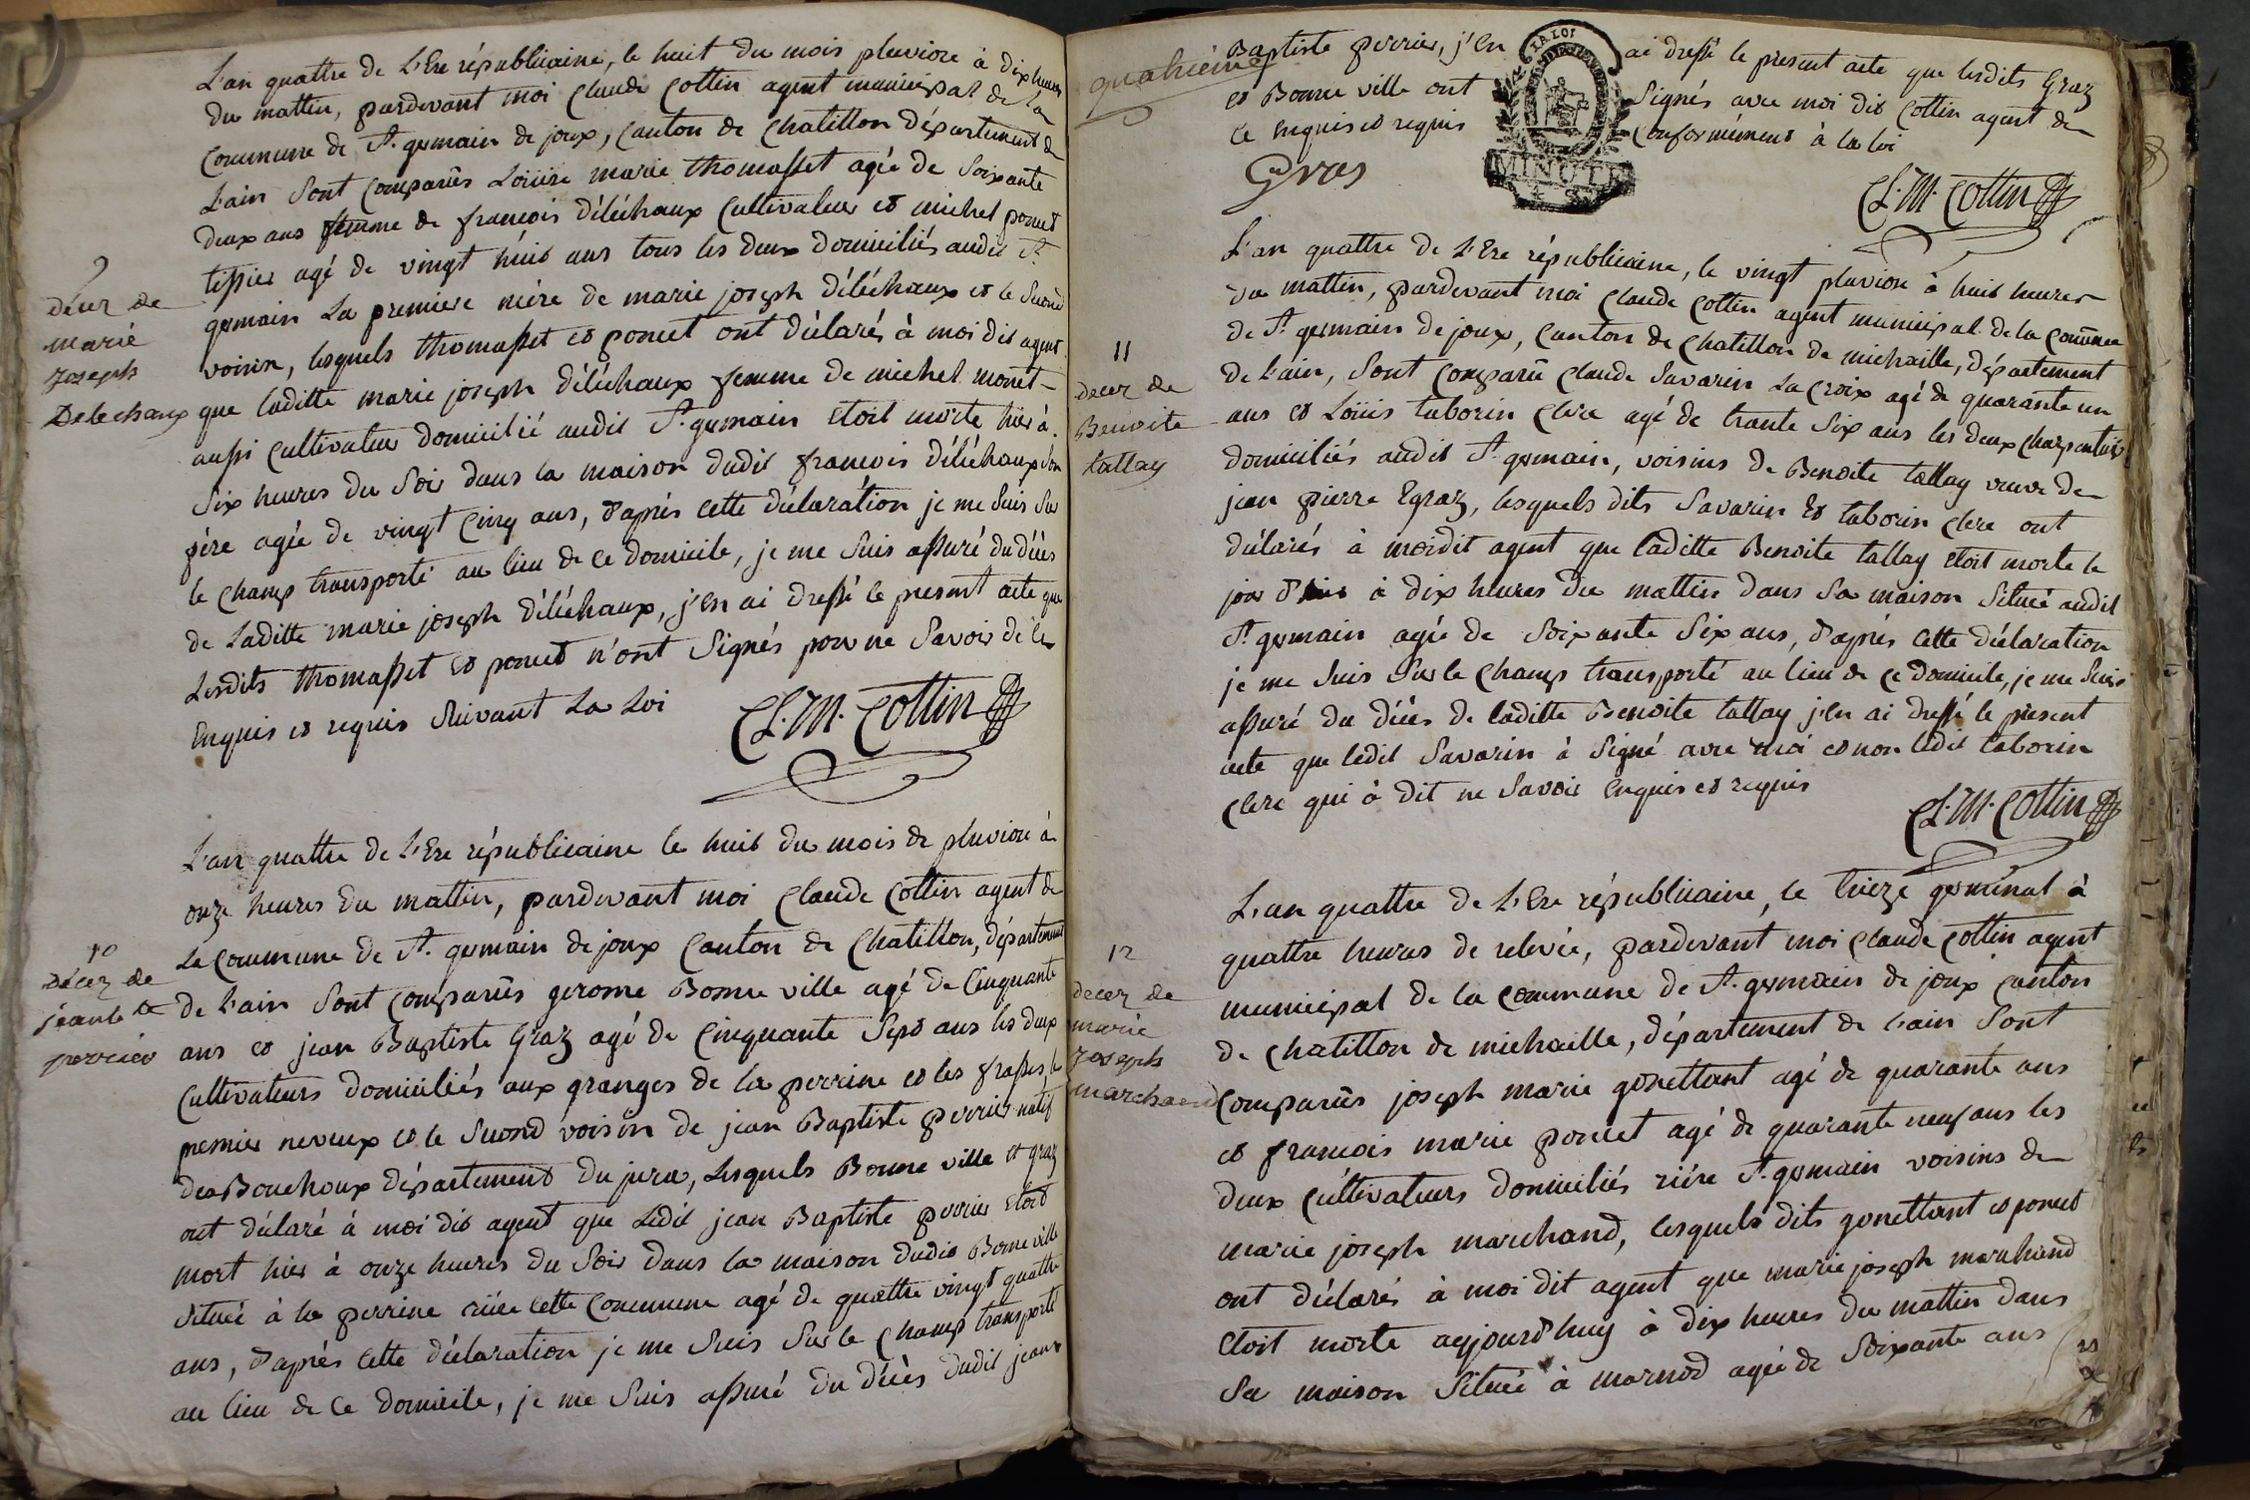 L'an quattre de L'Ere républicaine, le huit du mois pluviose à dix heures
du mattin, pardevant moi Claude Cottin agent municipal de la
Commune de St. germain de joux, Canton de Chatillon département de
L'ain sont comparûs Loüise marie thomasset agée de soixante
deux ans femme de francois Déléchaux Cultivateur et michel poncet
tissier agé de vingt huit ans tous les deux domiciliés audit St.
germain La premiere mére de marie joseph Déléchaux et le second
voisin, lesquels thomasset et poncet ont déclarés à moi dit agent
que laditte marie joseph Déléchaux femme de michel monet
aussi Cultivateur domicilié audit St. germain etoit morte hier à
six heures du soir dans la maison dudit francois Déléchaux son
pére agée de vingt Cinq ans, d'aprés cette déclaration je me suis sur
le champ transporté au lieu de ce domicile, je me suis assuré du décès
de Laditte marie joseph Déléchaux, j'en ai dressé le present acte que
Lesdits thomasset et poncet n'ont signés pour ne savoir de ce
Enquis et requis suivant La Loi
Cl. M. Cottin
décez de
marie
joseph
Delechaux
L'an quattre de L'Ere républicaine le huit du mois de pluviose à
onze heures du mattin, pardevant moi Claude Cottin agent de
La Commune de St. germain de joux Canton de Chatillon, département
de L'ain sont comparûs gerome Bonne ville agé de Cinquante
ans et jean Baptiste Graz agé de Cinquante sept ans les deux
Cultivateurs domiciliés aux granges de la perrine et les frasses, le
premier neveux et le second voisin de jean Baptiste perrier natif
des Bouchoux département du jura, Lesquels Bonne ville et graz
ont déclaré à moi dit agent que Ledit jean Baptiste perrier etoit
mort hier à onze heures du soir dans la maison dudit Bonne ville
située à la perrine riére cette Commune agé de quattre vingt quattre
ans, d'aprés cette déclaration je me suis sur le champ transporté
au lieu de ce domicile, je me suis assuré du décès dudit jean
10
décez de
jean bte
perrier
Baptiste perrier, j'en ai dressé le present acte que lesdits Graz
et Bonne ville ont signés avec moi dit Cottin agent de
ce enquis et requis Conformément à la loi
LA LOI
MINUTE
Gras
Cl. M. Cottin
L'an quattre de L'Ere républicaine, le vingt pluviose à huit heures
du mattin, pardevant moi Claude Cottin agent municipal de la Commune
de St. germain de joux, Canton de Chatillon de michaille, département
de L'ain, sont comparû Claude Savarin La Croix agé de quarante un
ans et Loüis taborin Clerc agé de trante six ans les deux charpentiers
domiciliés audit St. germain, voisins de Benoite tallay veuve de
jean pierre Egraz, lesquels dits Savarin et taborin Clerc ont
déclarés à moi dit agent que laditte Benoite tallay etoit morte le
jour d'hier à dix heures du mattin dans sa maison située audit
St. germain agée de soixante six ans, d'aprés cette déclaration
je me suis sur le champ transporté au lieu de ce domicile, je me suis
assuré du décès de laditte Benoite tallay j'en ai dressé le present
acte que ledit Savarin à signé avec moi et non ledit taborin
Clerc qui à dit ne savoir enquis et requis
Cl. M. Cottin
11
decez de
Benoite
tallay
L'an quattre de L'Ere républicaine, le treize germinal à
quattre heures de relevée, pardevant moi Claude Cottin agent
municipal de la Commune de St. germain de joux Canton
de Chatillon de michaille, département de L'ain sont
Comparûs joseph marie gonettant agé de quarante ans
et francois marie poncet agé de quarante neuf ans les
deux Cultivateurs domiciliés riére St. germain voisins de
marie joseph marchand, lesquels dits gonettant et poncet
ont déclarés à moi dit agent que marie joseph marchand
etoit morte aujourd'huy à dix heures du mattin dans
sa maison située à marnod agée de soixante ans
12
decez de
marie
joseph
marchand